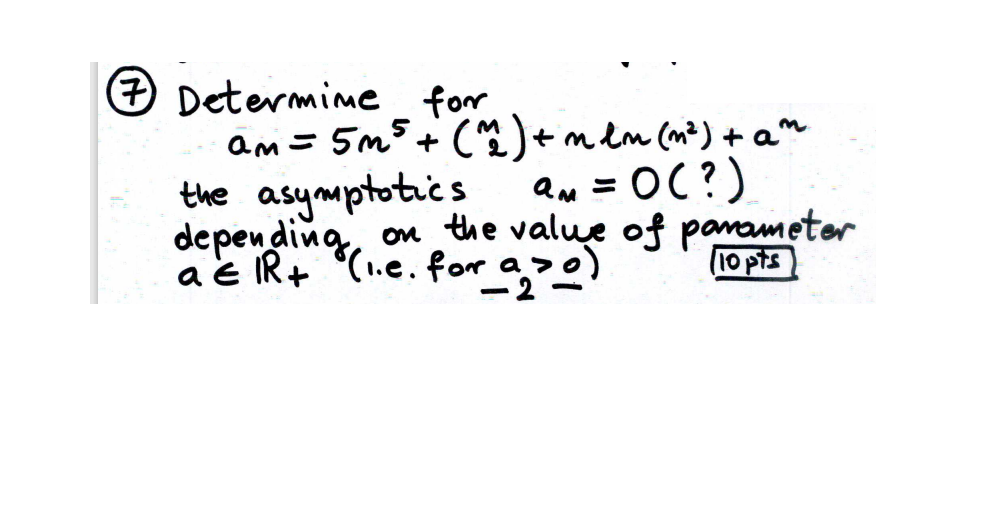 ⑦ Determine for
aₙ = 5n⁵ + (n 2) + n ln (n²) + aⁿ
the asymptotics aₙ = O(?)
depending on the value of parameter
a ∈ ℝ+ (i.e. for a > 0) 10 pts
— 2 —